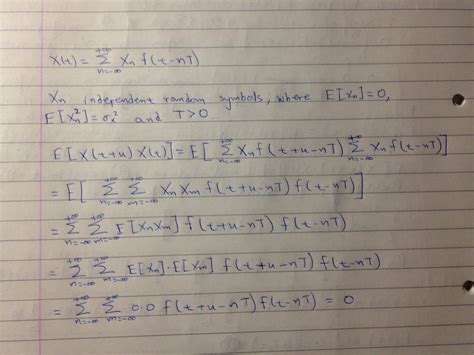 X(t) = \sum_{n=-\infty}^{+\infty} X_n f(t-nT)
X_n independent random symbols, where E[X_n]=0,
E[X_n^2]=σ_x^2 and T>0
E[X(t+u) X(t)] = E[ \sum_{n=-\infty}^{+\infty} X_n f(t+u-nT) \sum_{n=-\infty}^{+\infty} X_n f(t-nT) ]
= E[ \sum_{n=-\infty}^{+\infty} \sum_{m=-\infty}^{+\infty} X_n X_m f(t+u-nT) f(t-nT) ]
= \sum_{n=-\infty}^{+\infty} \sum_{m=-\infty}^{+\infty} E[X_n X_m] f(t+u-nT) f(t-nT)
= \sum_{n=-\infty}^{+\infty} \sum_{m=-\infty}^{+\infty} E[X_n]·E[X_m] f(t+u-nT) f(t-nT)
= \sum_{n=-\infty}^{+\infty} \sum_{m=-\infty}^{+\infty} 0·0 f(t+u-nT) f(t-nT) = 0